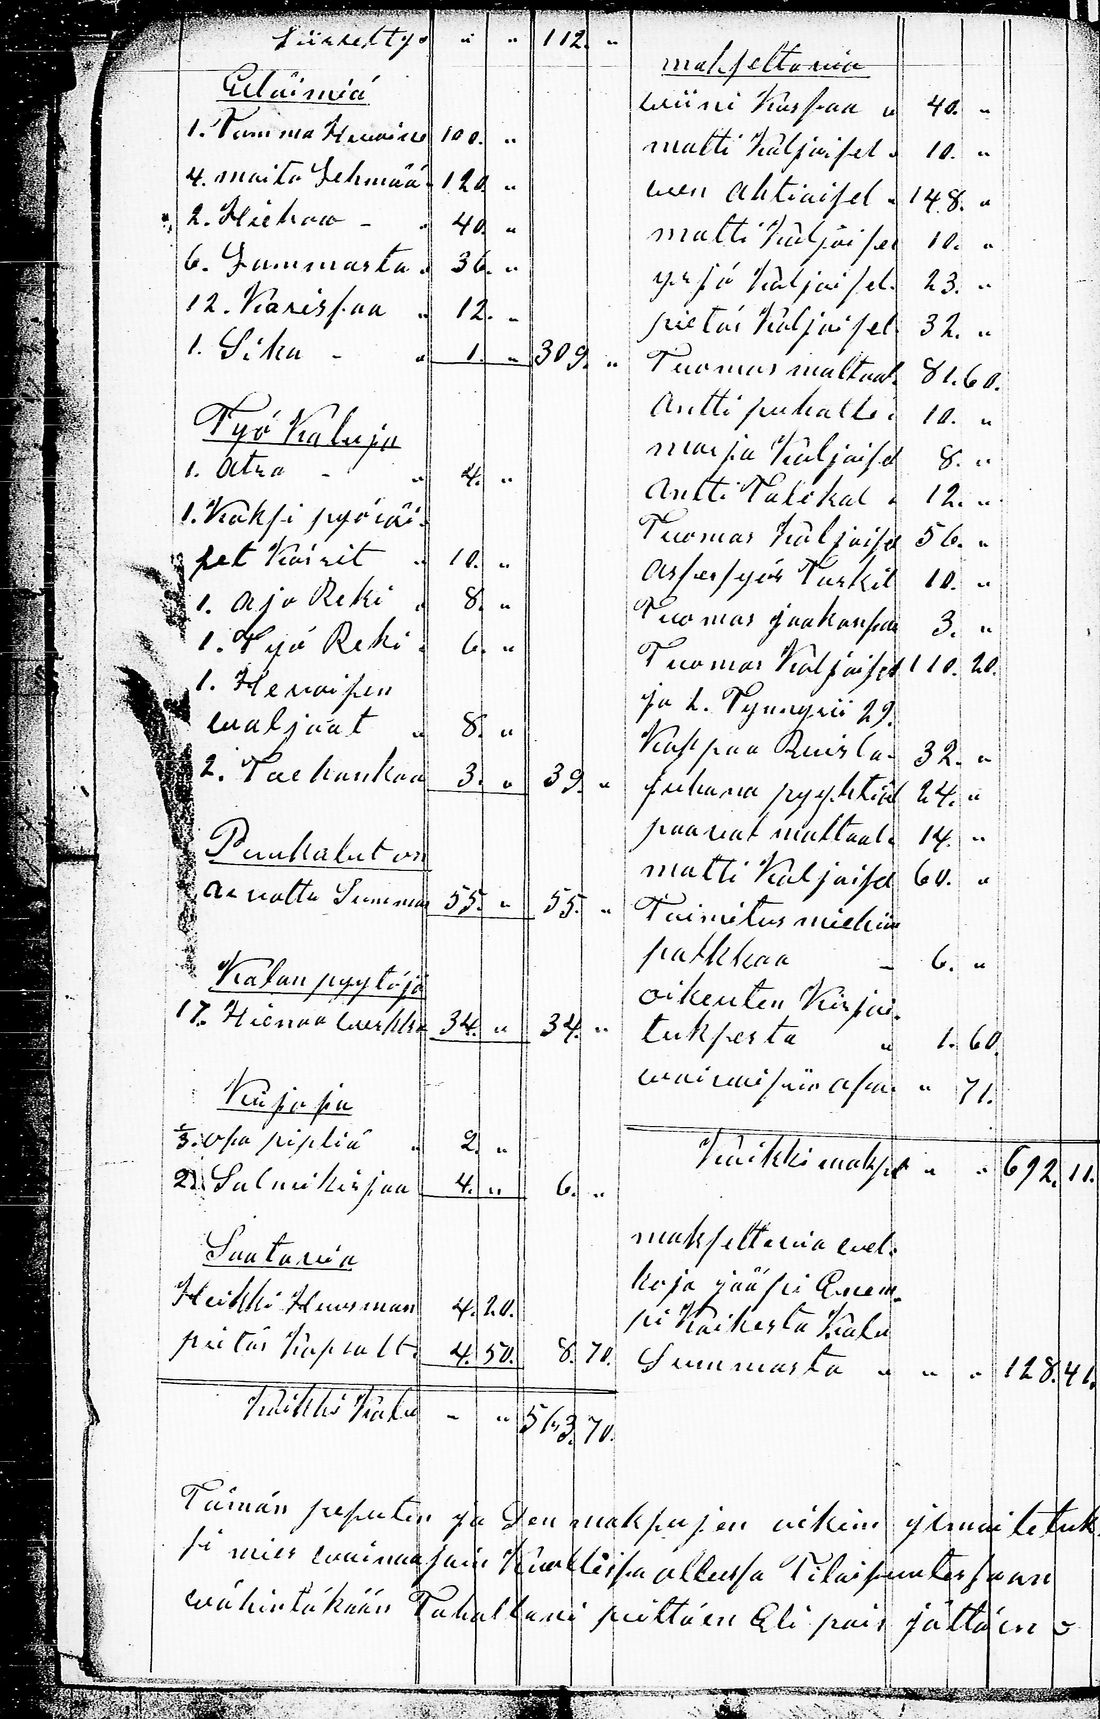 Siirretty " " 112. "
Eläimiä
1. Tamma Hevoine 100. "
4. maito Lehmää 120. "
2. Hiehoo - " 40. "
6. Lammasta " 36. "
12. Karissaa " 12. "
1. Sika - " 1. " 309. "
Työ Kaluja
1. Atra - " 4. "
1. Kaksi pyöräi-
set Kärit " 10. "
1. Ajo Reki " 8. "
1. Työ Reki " 6. "
1. Hevoisen
waljaat " 8. "
2. Taekonkaa 3. " 39. "
Puukalut on
arvattu Summas 55. " 55. "
Kalan pyytöjä
17. Hienoa werkko 34. " 34. "
Kirjoja
1/3. osa pipliä " 2. "
2. Salmikirjaa 4. " 6. "
Saatavia
Heikki Huusman 4. 20.
pietar 4. 50. 8. 70.
Kaikki Kalu - " 563. 70.
maksettavia
wiini Kassaa " 40. "
matti Käljäisel " 10. "
wen Ahtiaisel " 148. "
matti Käljäisel 10. "
yrjö Käljäisel. 23. "
pietar Käljäisel 32. "
Tuomas maltaal. 81. 60.
Antti puhakka 10. "
marja Käljäisel 8. "
Antti Talikal " 12. "
Tuomas Käljäisel 56. "
Turkil 10. "
Tuomas jaakonsaa 3. "
Tuomas Käljäisel 110. 20.
ja 2. Tynnyrii 29.
Kassaa Ruista. 32. "
juhana pyyktiä 24. "
paavat maltaal. 14. "
matti Käljäisel 60. "
Toimitus miehiin
palkkaa - 6. "
oikeuten Kirjoi-
tuksesta " 1. 60.
waivaisiin osa " 71.
Kaikki maksut " " 692. 11.
maksettavia wel-
koja jääpi Enem-
pi Kaikesta Kalu
Summasta " " " 128. 41.
Tämän pesuten ja Sen maksujen oikein ylmoitetuk-
si mies wainaasain Kuollessa ollessa Tilaisuutessaan
wähintäkään Tahaltani peittäen Eli pois jättäen